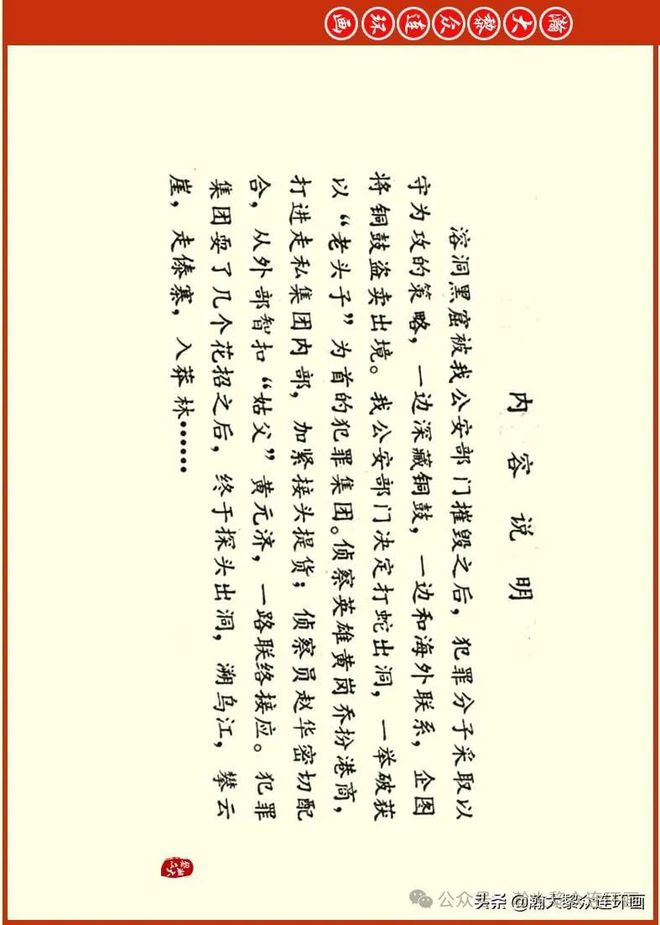 瀚大黎众连环画
内容说明
溶洞黑窟被我公安部门摧毁之后，犯罪分子采取以
守为攻的策略，一边深藏铜鼓，一边和海外联系，企图
将铜鼓盗卖出境。我公安部门决定打蛇出洞，一举破获
以“老头子”为首的犯罪集团。侦察英雄黄岗乔扮港商，
打进走私集团内部，加紧接头提货；侦察员赵华密切配
合，从外部智扣“姑父”黄元济，一路联络接应。犯罪
集团耍了几个花招之后，终于探头出洞，溯乌江，攀云
崖，走傣寨，入莽林……
公众号
头条 @瀚大黎众连环画